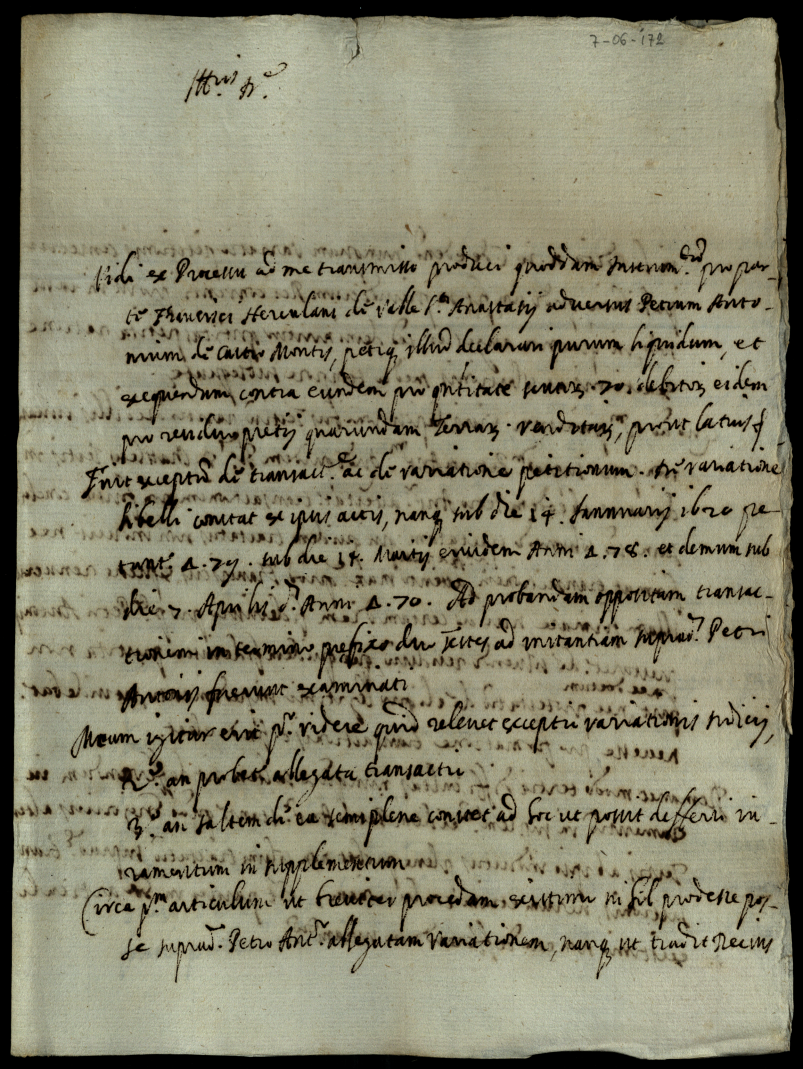 7-06-172
Ill.ris D.e
Vidi ex Processu ad me transmisso produci quoddam Instrum.tum pro par-
te Francisci Herculani de Valle S. Anastasij adversus Petrum Anto-
nium de Castro Montis, petiq illud declarari purum liquidum, et
exequendum contra eundem pro qntitate scutor. 70. debitor. eidem
pro residuo pretij quarundam Terrar. venditar., prout latius
Fuit exceptu de transact.e ac de variatione petitionum. De variatione
libelli constat ex ipsis actis, nanq sub die 14. Iannuarij 1620 pe-
sub die Martij eiusdem Anni Δ.78. et demum sub
die 7. Aprilis d. Anni Δ.70. Ad probandam oppositam transac-
tionem in termino prefixo duo testes ad instantiam suprad. Petri
Antonij fuerunt examinati
Meum igitur erit p.o videre quid relevet exceptio variationis Iudicij,
2.o an probata allegata transactio
3.o an saltem de ea semiplene constet ad hoc ut possit defferri iu-
ramentum in supplementum
Circa p.m articulum ut breviter procedam existimo nihil prodesse pos-
se suprad. Petro Ant.o allegatam variationem, nanq ut tradit